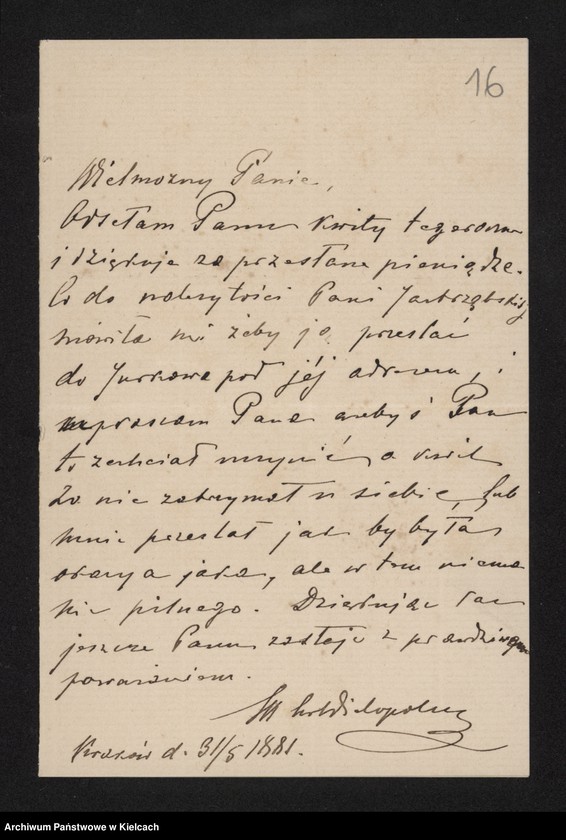 16
Wielmożny Panie,
Odsełam Panu kwity
i dziękuję za przesłane pieniądze.
Co do należytości Pani Jastrzębskiej
mówiła mi żeby ją przesłać
do Jurkowa pod jéj adresem, i
upraszam Pana ażebyś Pan
to zechciał uczynić, a kwit
za nie zatrzymał u siebie, lub
mnie przesłał jak by była
okazya jaka, ale w tem niema
nic pilnego. Dziękując raz
jeszcze Panu zostaję z prawdziwym
poważaniem.
Wielopolsky
Kraków d. 31/5 1881.
Archiwum Państwowe w Kielcach